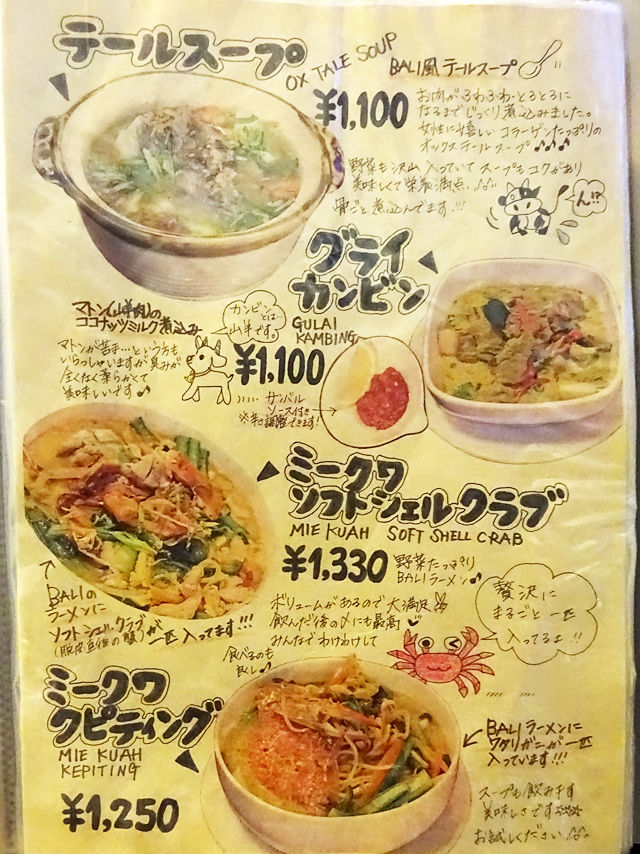 テールスープ
OX TALE SOUP
BALI風テールスープ
¥1,100
お肉がふわふわ・とろとろに
なるまでじっくり煮込みました。
女性に嬉しいコラーゲンたっぷりの
オックステールスープ♪♪♪
野菜も沢山入っていてスープもコクがあり
美味しくて栄養満点♪♪
骨ごと煮込んでます!!!
ん!?
グライ
カンビン
GULAI
KAMBING
マトン(山羊肉)の
ココナッツミルク煮込み
カンビンとは
山羊です。
¥1,100
マトンが苦手…という方も
いらっしゃいますが臭みが
全くなく柔らかくて
美味しいです♪
サンバル
ソース付き
※辛さ調整できます!
ミークワ
ソフトシェルクラブ
MIE KUAH SOFT SHELL CRAB
¥1,330
野菜たっぷり
BALIラーメン♪
BALIの
ラーメンに
ソフトシェルクラブが
(脱皮直後の蟹) 一匹入ってます!!!
ボリュームがあるので大満足
飲んだ後の〆にも最高
みんなでわけわけして
食べるのも
良し♪
贅沢に
まるごと一匹
入ってるよ!!
ミークワ
クピティング
MIE KUAH
KEPITING
¥1,250
BALIラーメンに
ワタリガニが一匹
入っています!!!
スープも飲み干す
美味しさです☆☆☆
お試しください